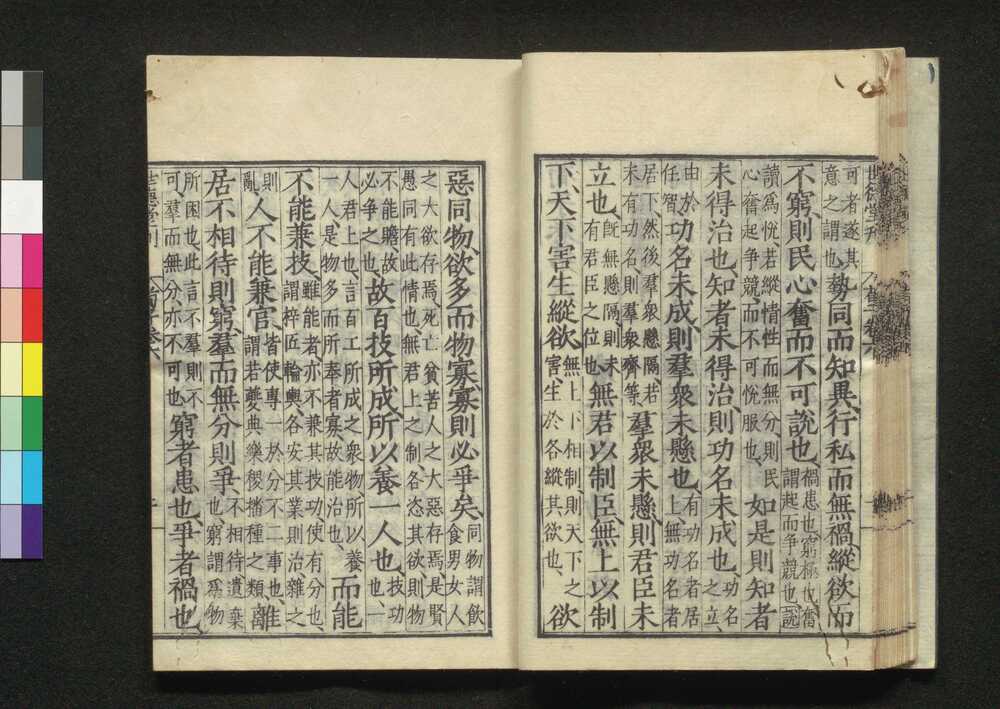 世德堂刊
可者遂其
意之謂也
勢同而知異行私而無禍縱欲而
不窮則民心奮而不可說也
禍患也窮極也奮
謂起而争競也說
讀爲恱若縱情性而無分則民
心奮起争競而不可恱服也
如是則知者
未得治也知者未得治則功名未成也
功名
之立
由於
任智
功名未成則羣衆未懸也
有功名者居
上無功名者
居下然後羣衆懸隔若
未有功名則羣衆齊等
羣衆未懸則君臣未
立也
旣無懸隔則未
有君臣之位也
無君以制臣無上以制
下天下害生縱欲
無上下相制則天下之
害生於各縱其欲也
欲
惡同物欲多而物寡寡則必爭矣
同物謂飲
食男女人
之大欲存焉死亡貧苦人之大惡存焉是賢
愚同有此情也無君上之制各恣其欲則物
不能贍故
必争之也
故百技所成所以養一人也
技功
也一
人君上也言百工所成之衆物所以養
一人是物多而所奉者寡故能治也
而能
不能兼技
雖能者亦不兼其技功使有分也
謂梓匠輪輿各安其業則治雜之
則
亂
人不能兼官
皆使專一於分不二事也
謂若夔典樂稷播種之類
離
居不相待則窮羣而無分則爭
不相待遺棄
也窮謂爲物
所困也此言不羣則不
可羣而無分亦不可也
窮者患也爭者禍也
世德堂刊
荀子卷六